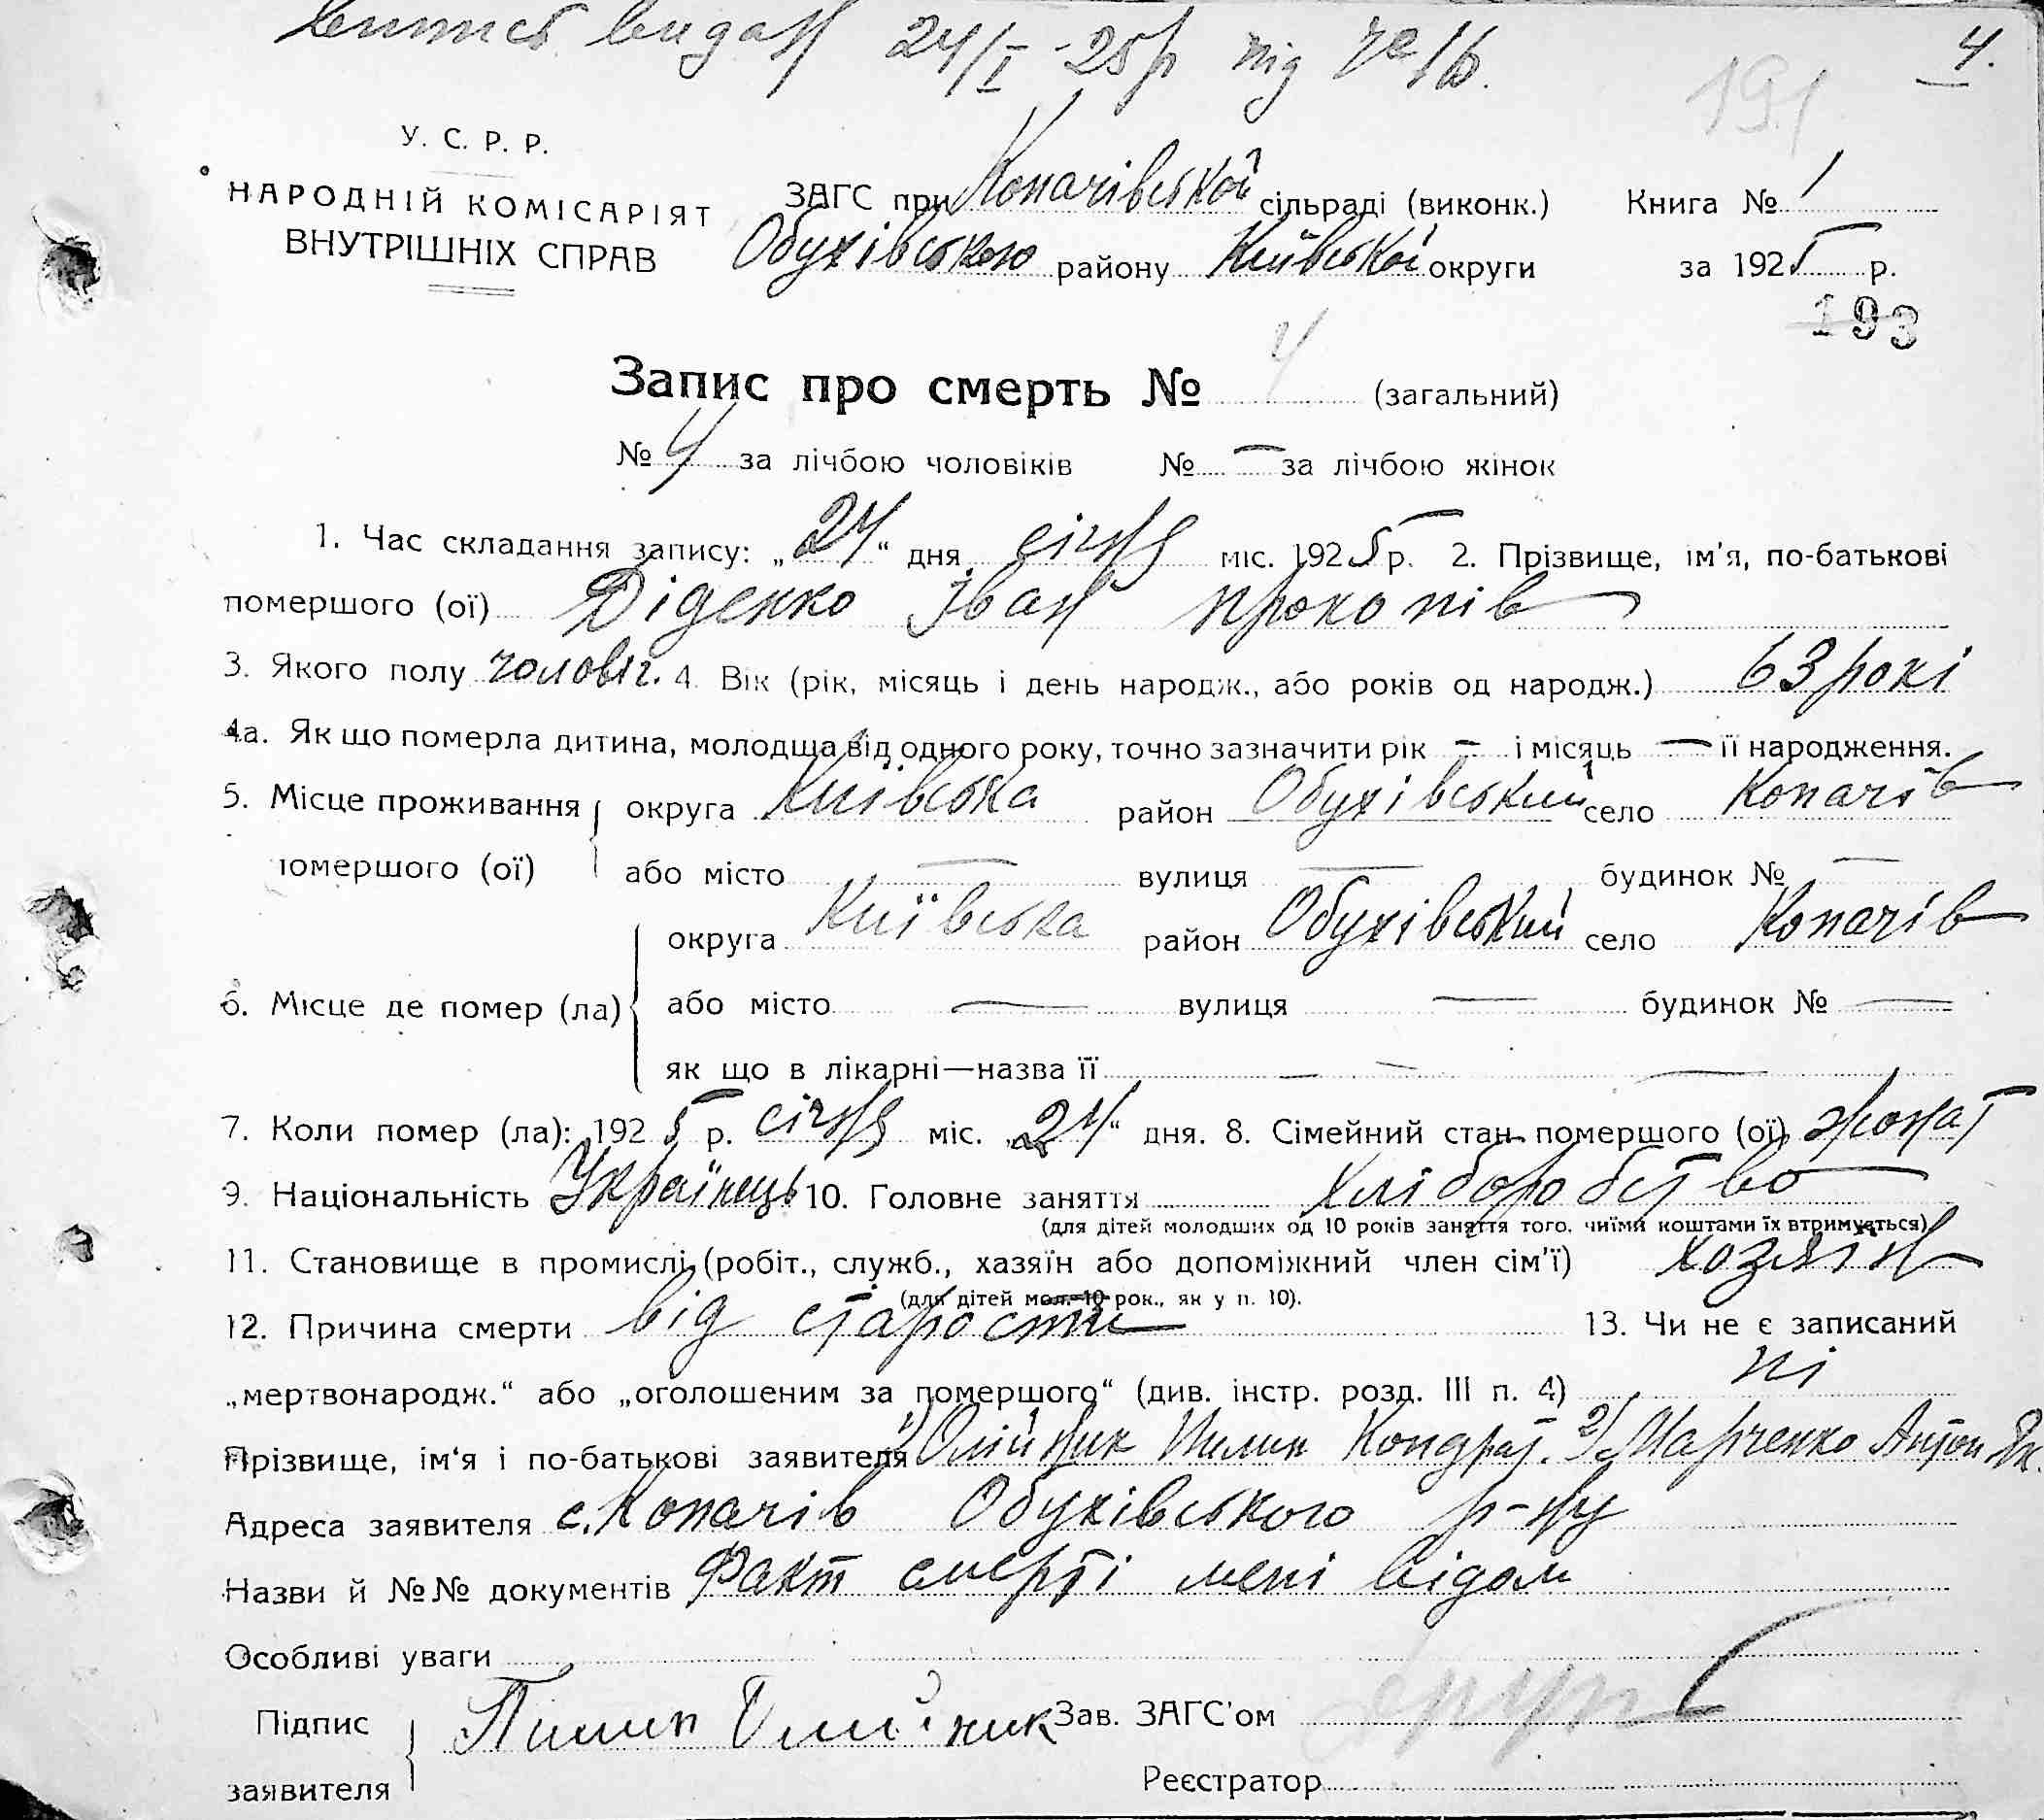 Випись видан 24/I -25р під № 16.
4.
191
У. С. Р. Р.
НАРОДНІЙ КОМІСАРІЯТ
ВНУТРІШНІХ СПРАВ
ЗАГС при Копачівській сільраді (виконк.) Книга № 1
Обухівського району Київської округи за 1925 р.
193
Запис про смерть № 4 (загальний)
№ 4 за лічбою чоловіків № — за лічбою жінок
1. Час складання запису: „24“ дня січня міс. 1925 р. 2. Прізвище, ім’я, по-батькові
помершого (ої) Діденко Іван Прокопів
3. Якого полу чоловіч. 4. Вік (рік, місяць і день народж., або років од народж.) 63 рокі
4а. Як що померла дитина, молодща від одного року, точно зазначити рік — і місяць — її народження.
5. Місце проживання округа Київська район Обухівський село Копачів
помершого (ої) або місто — вулиця — будинок № —
округа Київська район Обухівський село Копачів
6. Місце де помер (ла) або місто — вулиця — будинок № —
як що в лікарні—назва її — — —
7. Коли помер (ла): 1925 р. січня міс. „24“ дня. 8. Сімейний стан помершого (ої) жонат
9. Національність Українець 10. Головне заняття хліборобство
(для дітей молодших од 10 років заняття того, чиїми коштами їх втримується)
11. Становище в промислі (робіт., служб., хазяїн або допоміжний член сім’ї) хозяїн
(для дітей мол. 10 рок., як у п. 10).
12. Причина смерти від старости 13. Чи не є записаний
„мертвонародж.“ або „оголошеним за помершого“ (див. інстр. розд. III п. 4) ні
Прізвище, ім‘я і по-батькові заявителя 1) Олійник Пилип Кондрат. 2) Марченко Антон Як.
Адреса заявителя с. Копачів Обухівського р-ну
Назви й №№ документів Факт смерті мені відом
Особливі уваги
Підпис Пилип Олийник Зав. ЗАГС’ом
заявителя Реєстратор